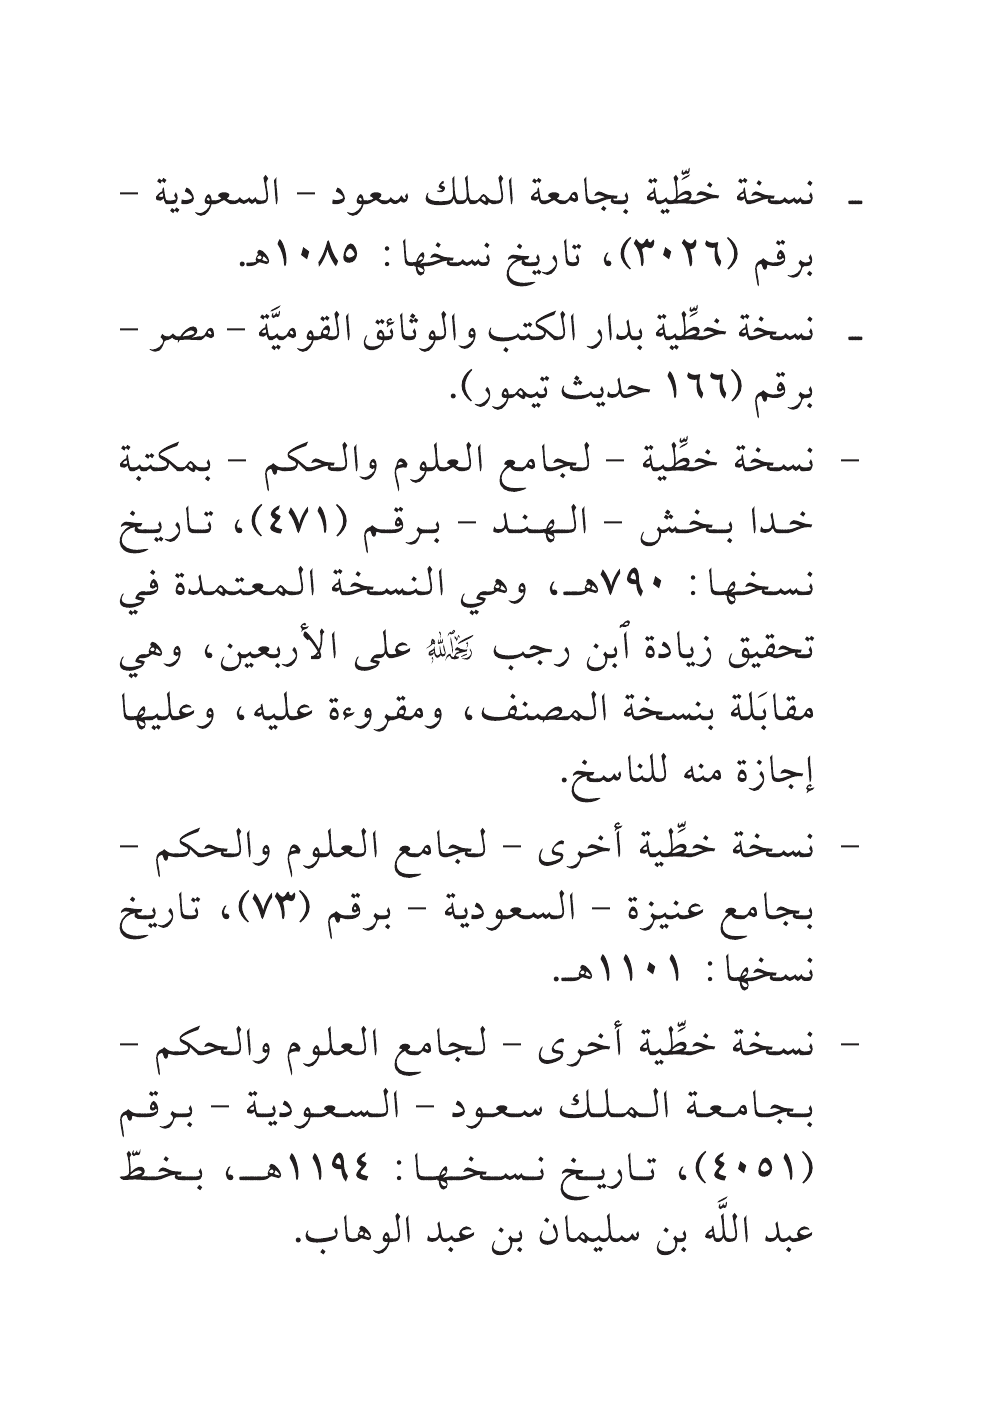 ـ نسخة خطِّية بجامعة الملك سعود – السعودية –
برقم (٣٠٢٦)، تاريخ نسخها: ١٠٨٥هـ.
ـ نسخة خطِّية بدار الكتب والوثائق القوميَّة – مصر –
برقم (١٦٦ حديث تيمور).
– نسخة خطِّية – لجامع العلوم والحكم – بمكتبة
خدا بخش – الهند – برقم (٤٧١)، تاريخ
نسخها: ٧٩٠هـ، وهي النسخة المعتمدة في
تحقيق زيادة ٱبن رجب رَحِمَهُ ٱللَّهُ على الأربعين، وهي
مقابَلة بنسخة المصنف، ومقروءة عليه، وعليها
إجازة منه للناسخ.
– نسخة خطِّية أخرى – لجامع العلوم والحكم –
بجامع عنيزة – السعودية – برقم (٧٣)، تاريخ
نسخها: ١١٠١هـ.
– نسخة خطِّية أخرى – لجامع العلوم والحكم –
بجامعة الملك سعود – السعودية – برقم
(٤٠٥١)، تاريخ نسخها: ١١٩٤هـ، بخطّ
عبد اللَّه بن سليمان بن عبد الوهاب.